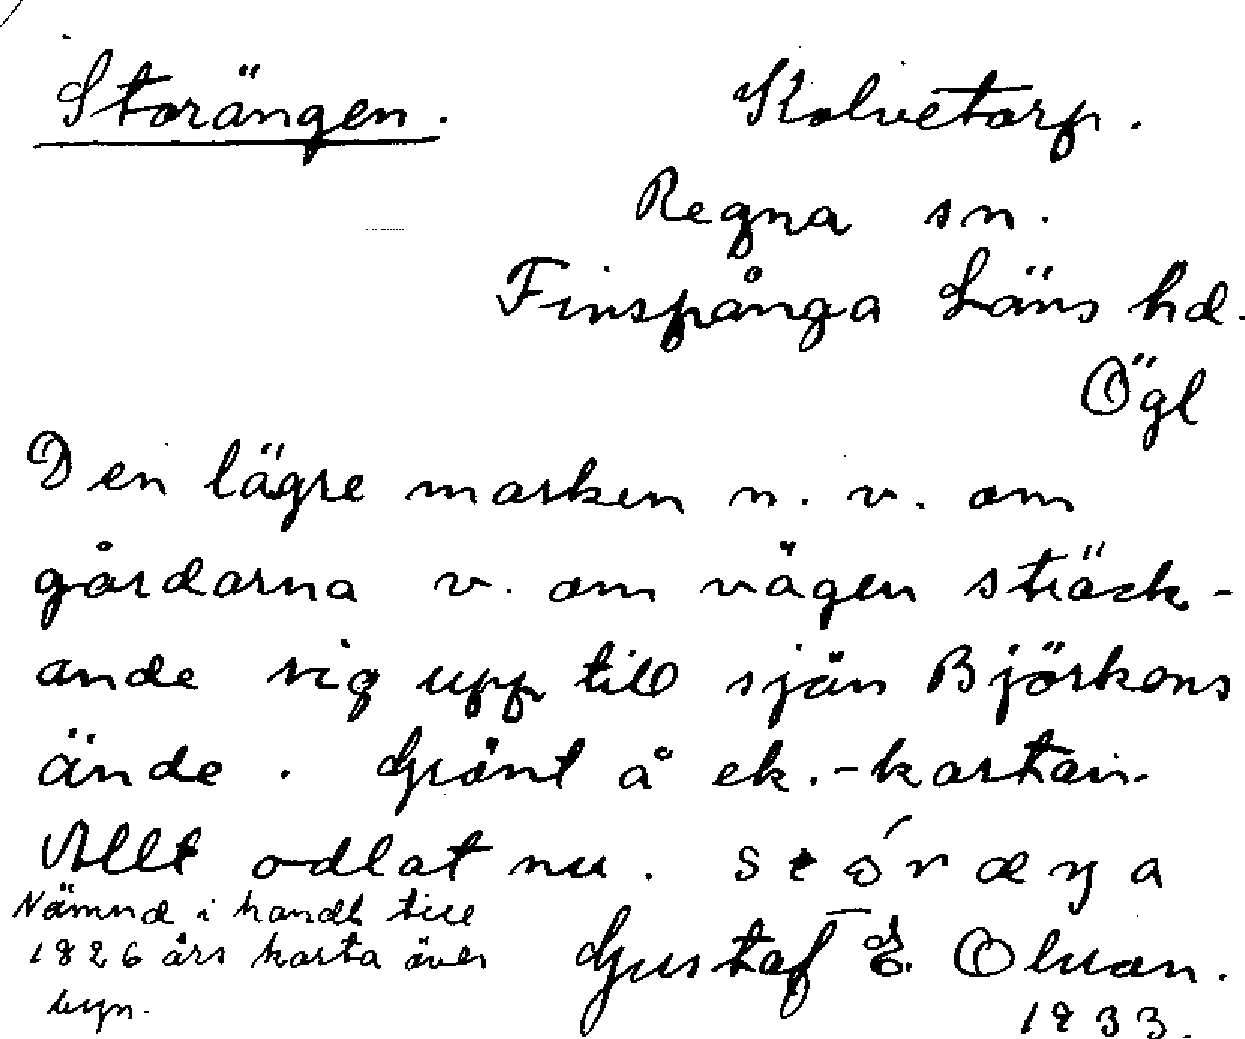 Storängen. Kolvetorp.
Regna sn.
Finspånga Läns hd.
Ögl
Den lägre marken n. v. om
gårdarna v. om vägen sträck-
ande sig upp till sjön Björkens
ände. Grönt å ek.-kartan.
Allt odlat nu.
Nämnd i handl. till
1826 års karta över
byn.
Gustaf E.
1933.